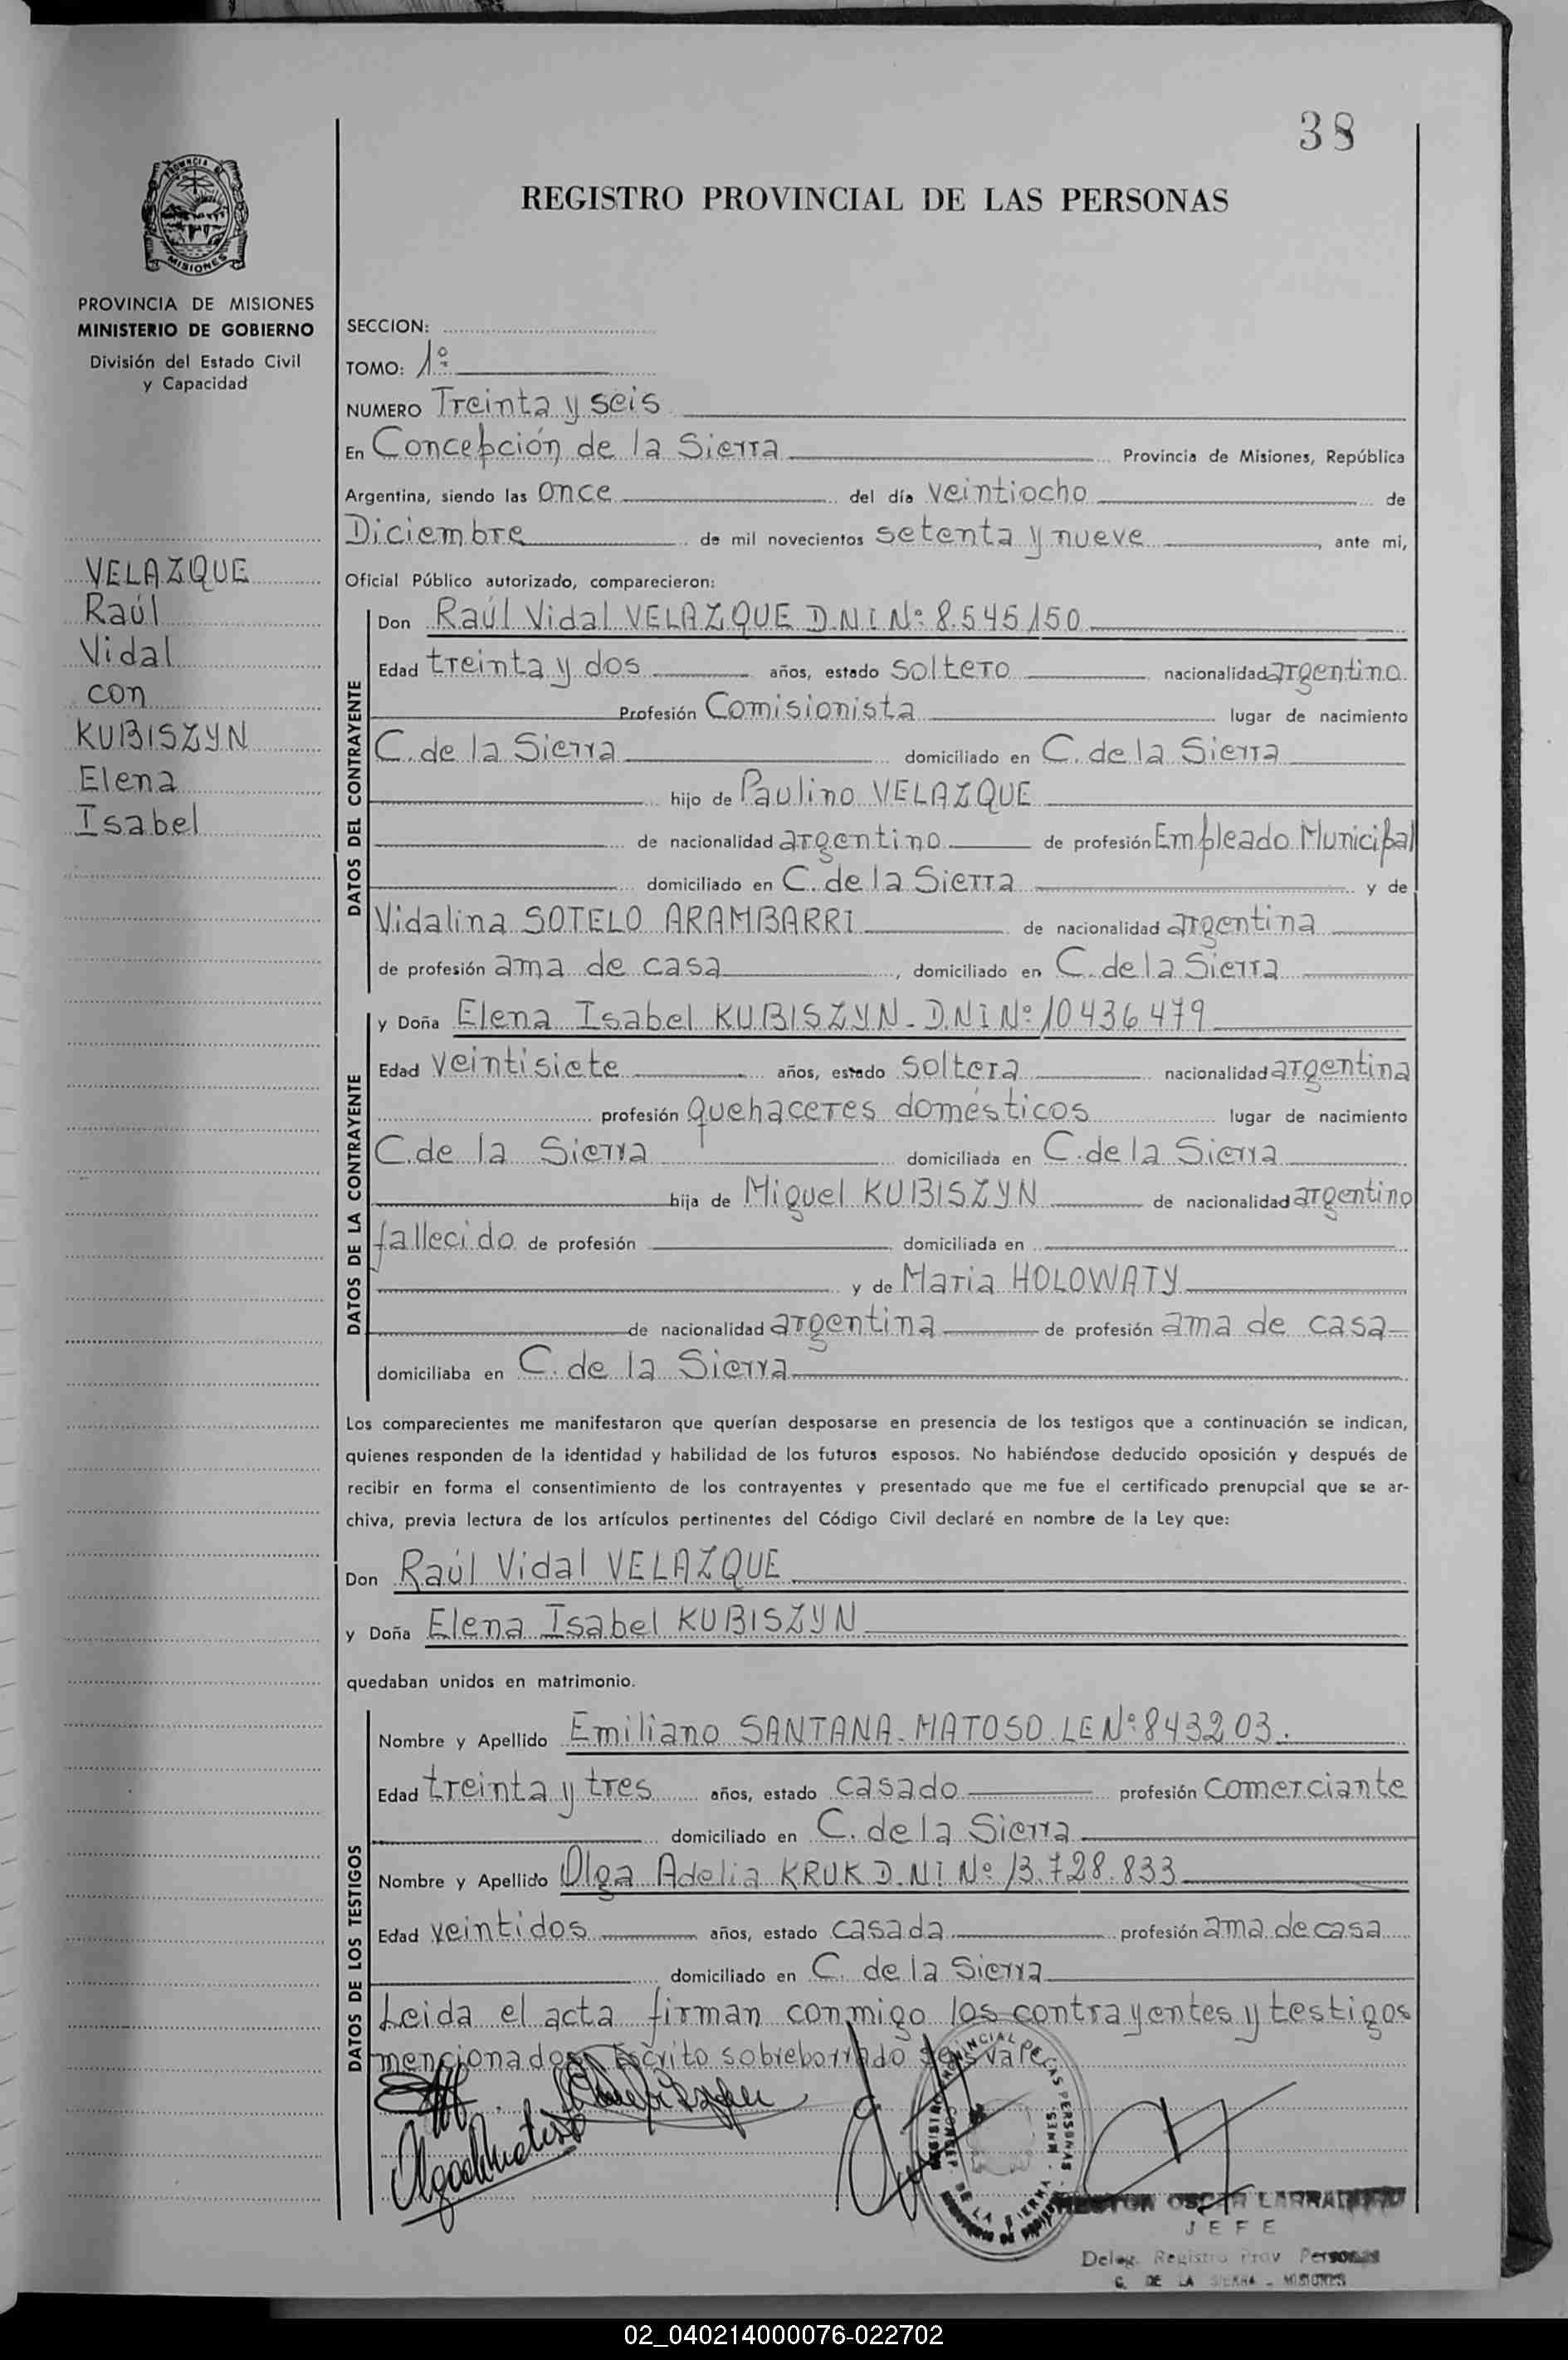 38
REGISTRO PROVINCIAL DE LAS PERSONAS
PROVINCIA DE
MISIONES
PROVINCIA DE MISIONES
MINISTERIO DE GOBIERNO
División del Estado Civil
y Capacidad
VELAZQUE
Raúl
Vidal
con
KUBISZYN
Elena
Isabel
SECCION:
TOMO: 1º
NUMERO Treinta y seis
En Concepción de la Sierra Provincia de Misiones, República
Argentina, siendo las once del día veintiocho de
Diciembre de mil novecientos setenta y nueve, ante mi,
Oficial Público autorizado, comparecieron:
DATOS DEL CONTRAYENTE
Don Raúl Vidal VELAZQUE D.N.I Nº 8.545.150
Edad treinta y dos años, estado soltero nacionalidad argentino
Profesión Comisionista lugar de nacimiento
C. de la Sierra domiciliado en C. de la Sierra
hijo de Paulino VELAZQUE
de nacionalidad argentino de profesión Empleado Municipal
domiciliado en C. de la Sierra y de
Vidalina SOTELO ARAMBARRI de nacionalidad argentina
de profesión ama de casa, domiciliado en C. de la Sierra
DATOS DE LA CONTRAYENTE
y Doña Elena Isabel KUBISZYN - D.N.I Nº 10436479
Edad veintisiete años, estado soltera nacionalidad argentina
profesión quehaceres domésticos lugar de nacimiento
C. de la Sierra domiciliada en C. de la Sierra
hija de Miguel KUBISZYN de nacionalidad argentino
fallecido de profesión domiciliada en
y de Maria HOLOWATY
de nacionalidad argentina de profesión ama de casa
domiciliaba en C. de la Sierra
Los comparecientes me manifestaron que querían desposarse en presencia de los testigos que a continuación se indican,
quienes responden de la identidad y habilidad de los futuros esposos. No habiéndose deducido oposición y después de
recibir en forma el consentimiento de los contrayentes y presentado que me fue el certificado prenupcial que se ar-
chiva, previa lectura de los artículos pertinentes del Código Civil declaré en nombre de la Ley que:
Don Raúl Vidal VELAZQUE
y Doña Elena Isabel KUBISZYN
quedaban unidos en matrimonio.
DATOS DE LOS TESTIGOS
Nombre y Apellido Emiliano SANTANA - MATOSO LE Nº 843203.
Edad treinta y tres años, estado casado profesión comerciante
domiciliado en C. de la Sierra
Nombre y Apellido Olga Adelia KRUK D.NI Nº 13.728.833
Edad veintidos años, estado casada profesión ama de casa
domiciliado en C. de la Sierra
Leida el acta firman conmigo los contrayentes y testigos
mencionados. Escrito sobreborrado vale.
REGISTRO PROVINCIAL DE LAS PERSONAS
DE LA SIERRA - MNES.
OSCAR
JEFE
Deleg. Registro Prov Personas
C. DE LA SIERRA - MISIONES
02_040214000076-022702